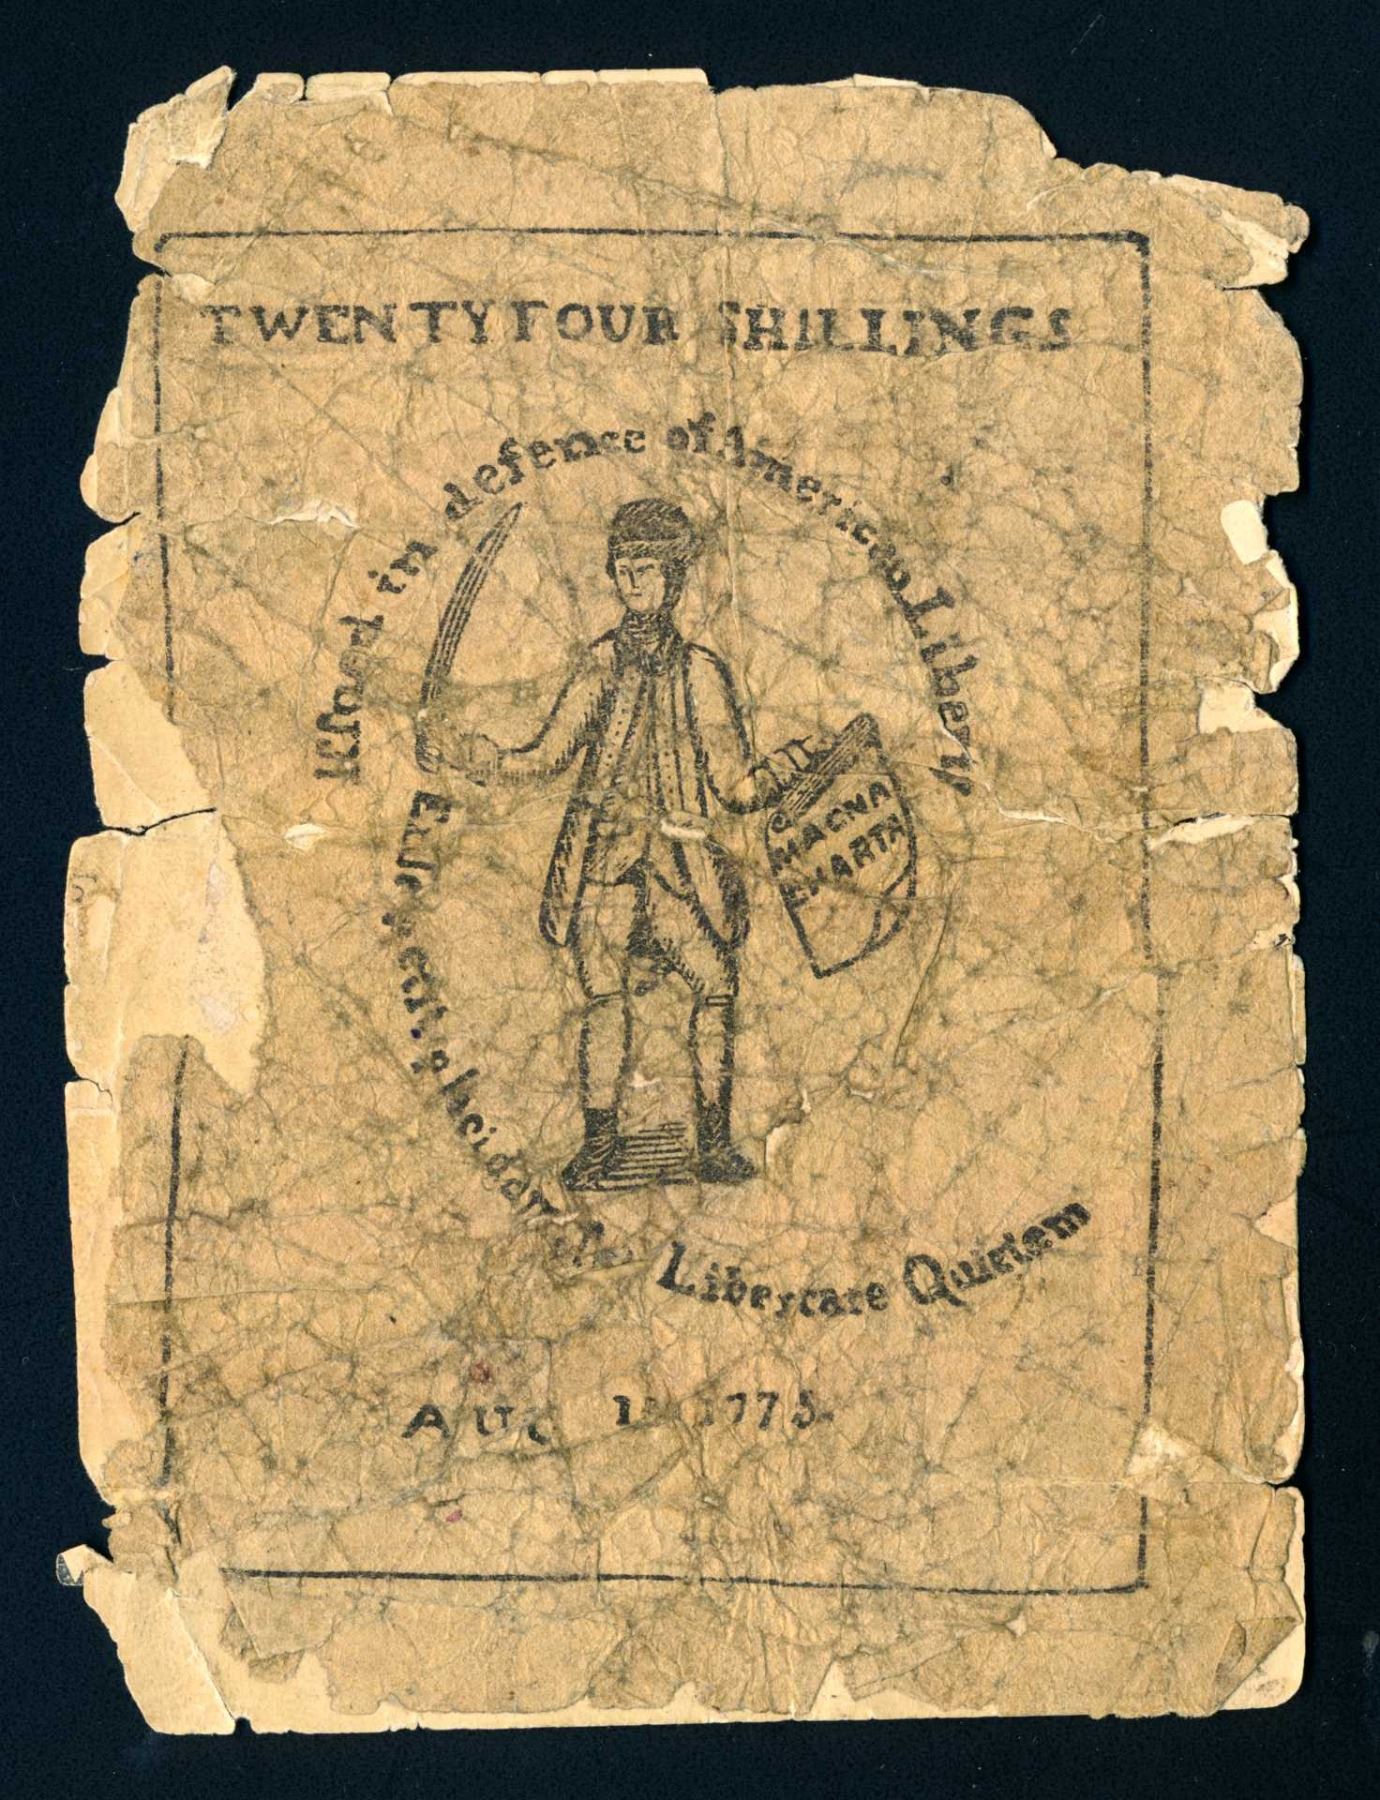 TWENTY FOUR SHILLINGS
Issued in defence of American Liberty
MAGNA
CHARTA
Ense petit placidam sub Libertate Quietem
AUG 18 1775.